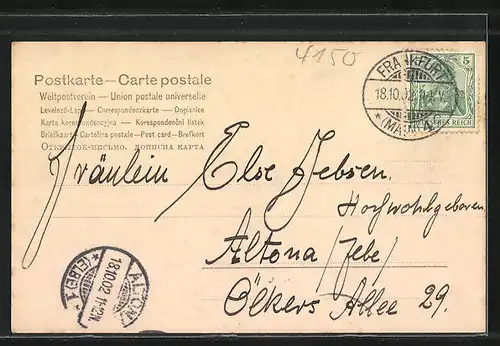 4150
Postkarte – Carte postale
Weltpostverein – Union postale universelle
Levelező-Lap – Correspondenzkarte – Dopisnice
Karta korespondencyjna – Korespondenční lístek
Briefkaart – Cartolina postale – Post card – Brefkort
Открытое-письмо. дописна карта
FRANKFURT
18.10.02
* (MAIN)
5
REICH
Fräulein Else Jebsen.
Hochwohlgeboren
Altona /Elbe/
Ölkers Allee 29.
ALTONA
18.10.02 11-12N.
* (ELBE) 1 *